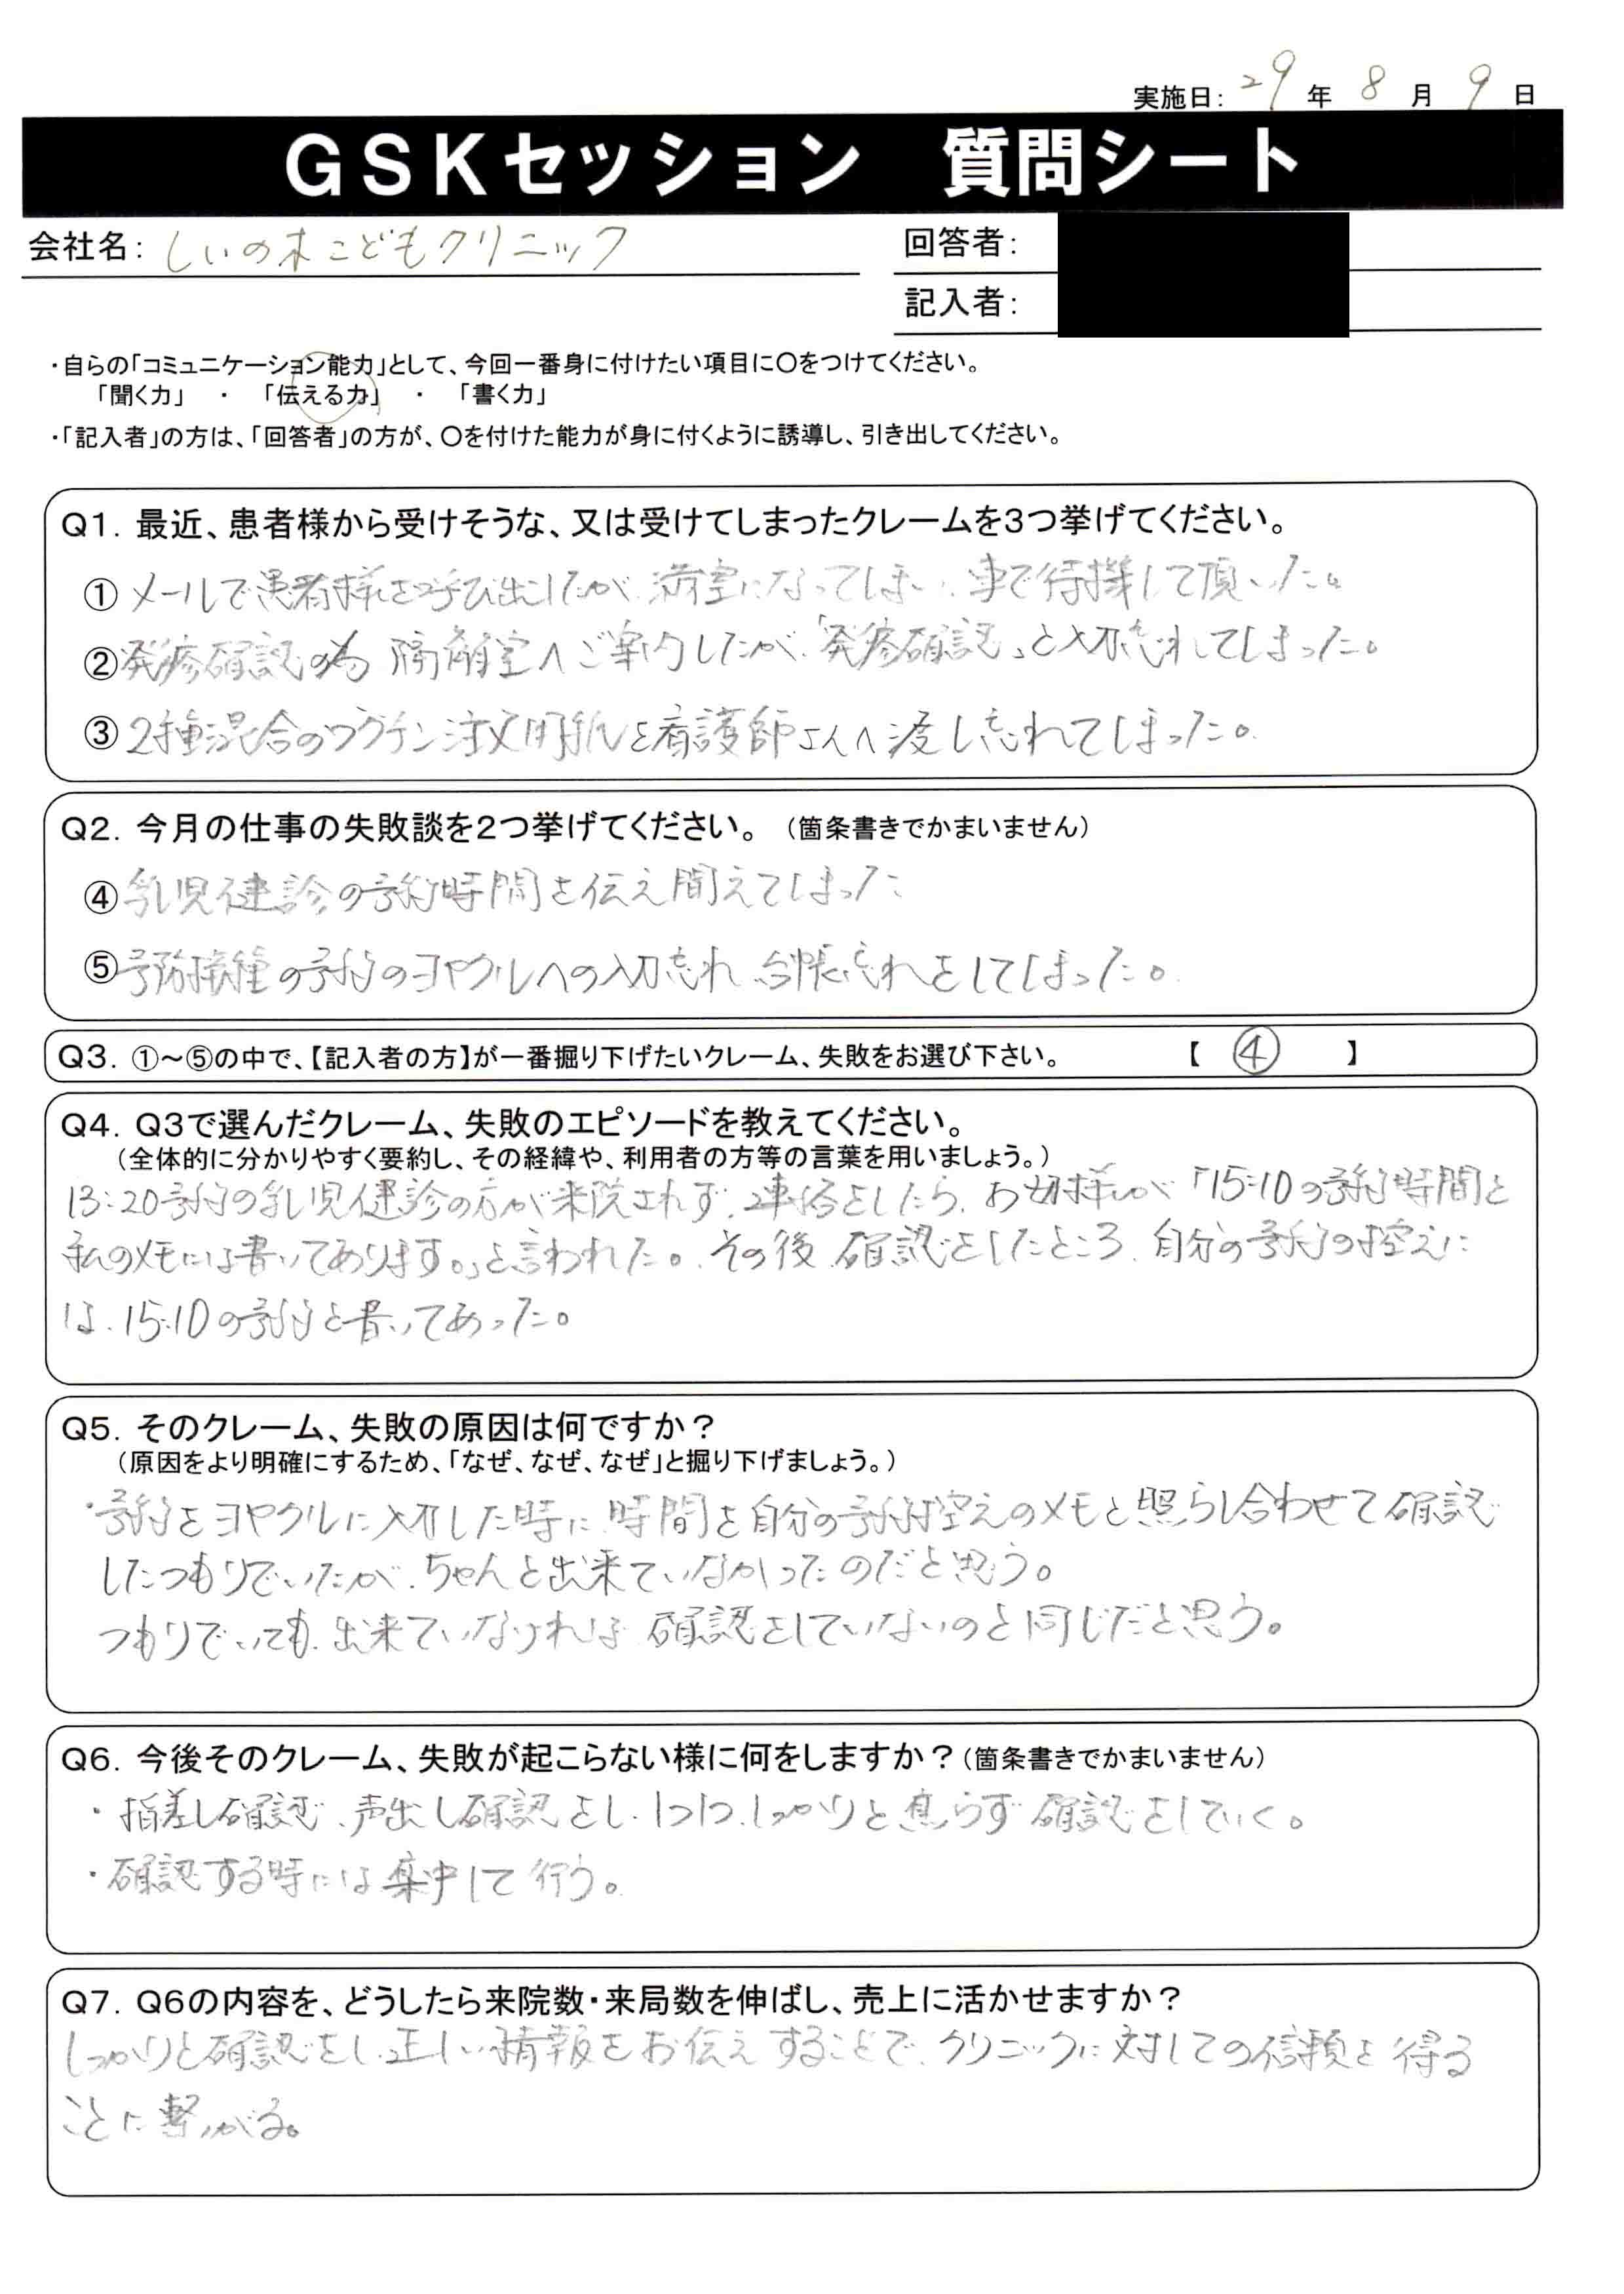 実施日: 29 年 8 月 9 日
GSKセッション　質問シート
会社名: しいの木こどもクリニック
回答者:
記入者:
・自らの「コミュニケーション能力」として、今回一番身に付けたい項目に〇をつけてください。
「聞く力」　・　「伝える力」　・　「書く力」
・「記入者」の方は、「回答者」の方が、〇を付けた能力が身に付くように誘導し、引き出してください。
Q1. 最近、患者様から受けそうな、又は受けてしまったクレームを3つ挙げてください。
① メールで患者様を呼び出したが、満室になってしまい、車で待機して頂いた。
② 発疹確認の為 隔離室へご案内したが、「発疹確認」と入力忘れてしまった。
③ 2種混合のワクチン注文用紙を看護師さんへ渡し忘れてしまった。
Q2. 今月の仕事の失敗談を2つ挙げてください。（箇条書きでかまいません）
④ 乳児健診の予約時間を伝え間えてしまった
⑤ 予防接種の予約のヨヤクルへの入力忘れ、台帳忘れをしてしまった。
Q3. ①～⑤の中で、【記入者の方】が一番掘り下げたいクレーム、失敗をお選び下さい。　【　④　】
Q4. Q3で選んだクレーム、失敗のエピソードを教えてください。
（全体的に分かりやすく要約し、その経緯や、利用者の方等の言葉を用いましょう。）
13:20予約の乳児健診の方が来院されず、連絡をしたら、お母様が「15:10の予約時間と
私のメモには書いてあります。」と言われた。その後、確認をしたところ、自分の予約の控えに
は、15:10の予約と書いてあった。
Q5. そのクレーム、失敗の原因は何ですか？
（原因をより明確にするため、「なぜ、なぜ、なぜ」と掘り下げましょう。）
・予約をヨヤクルに入力した時に、時間を自分の予約控えのメモと照らし合わせて確認
したつもりでいたが、ちゃんと出来ていなかったのだと思う。
つもりでいても、出来ていなければ 確認をしていないのと同じだと思う。
Q6. 今後そのクレーム、失敗が起こらない様に何をしますか？（箇条書きでかまいません）
・指差し確認、声出し確認をし、1つ1つ、しっかりと焦らず確認をしていく。
・確認する時には集中して行う。
Q7. Q6の内容を、どうしたら来院数・来局数を伸ばし、売上に活かせますか？
しっかりと確認をし、正しい情報をお伝えすることで、クリニックに対しての信頼を得る
ことに繋がる。